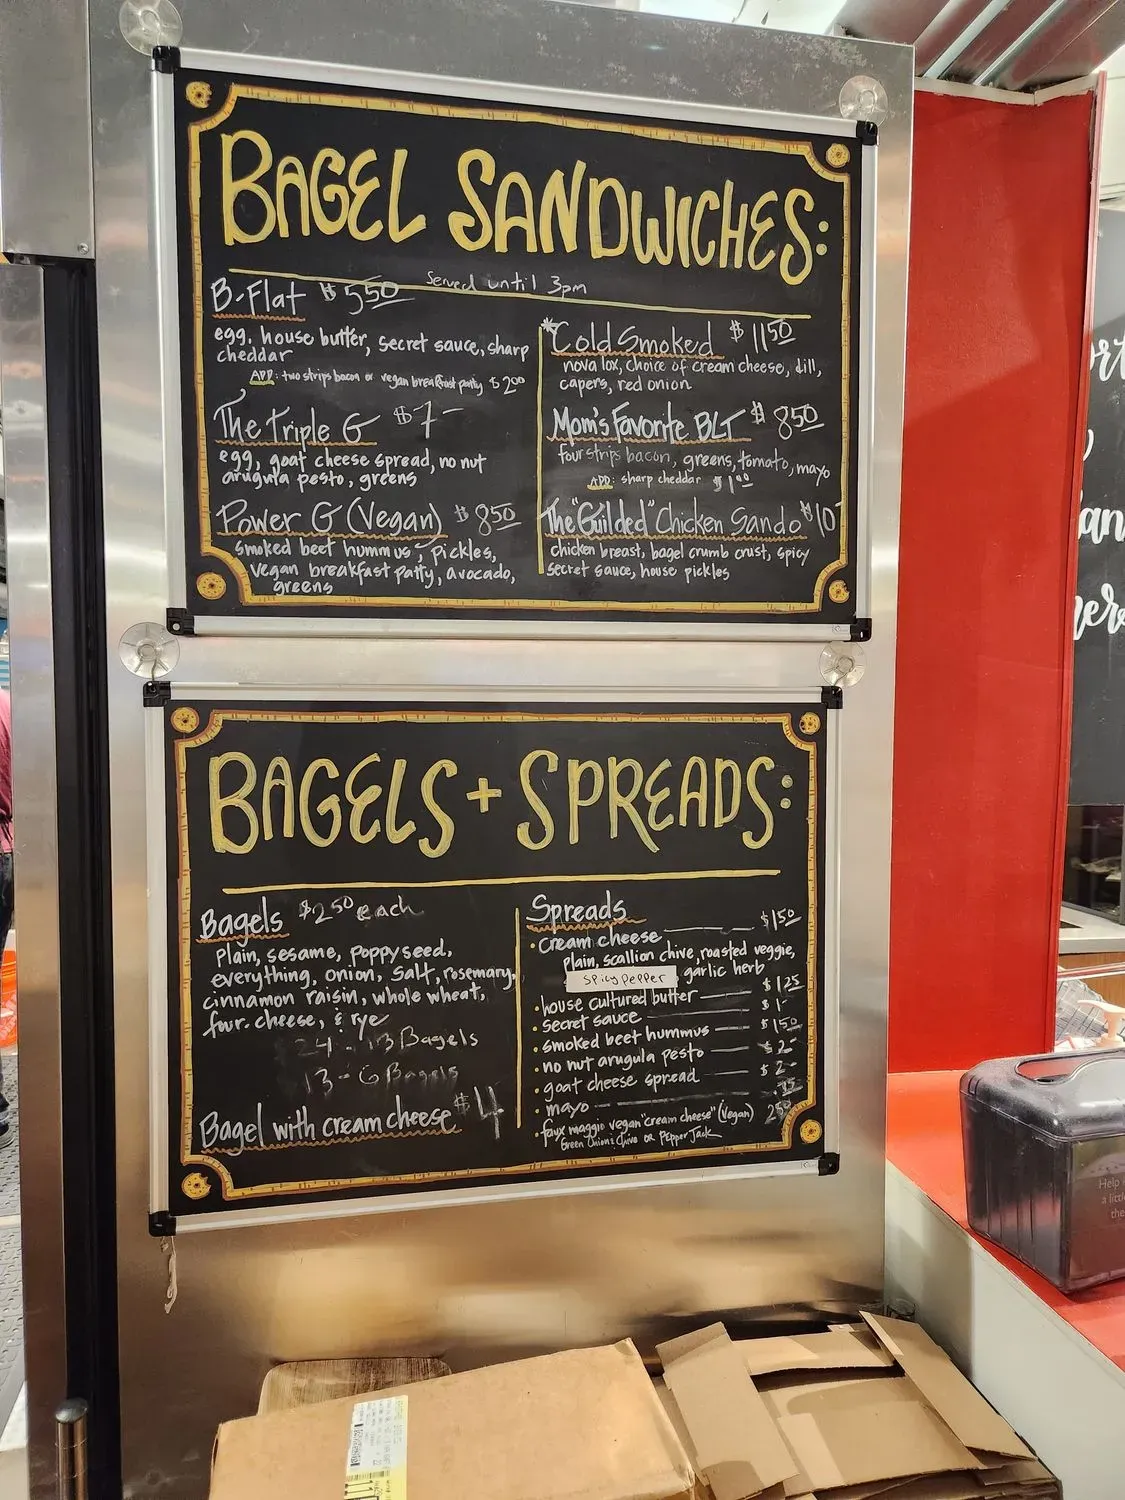 BAGEL SANDWICHES:
Served until 3pm
B-Flat $5.50
egg, house butter, secret sauce, sharp
cheddar
ADD: two strips bacon or vegan breakfast patty $2.00
The Triple G $7-
egg, goat cheese spread, no nut
arugula pesto, greens
Power G (Vegan) $8.50
smoked beet hummus, pickles,
vegan breakfast patty, avocado,
greens
*Cold Smoked $11.50
nova lox, choice of cream cheese, dill,
capers, red onion
Mom's Favorite BLT $8.50
four strips bacon, greens, tomato, mayo
ADD: sharp cheddar $1.00
The "Guilded" Chicken Sando $10-
chicken breast, bagel crumb crust, spicy
secret sauce, house pickles
BAGELS + SPREADS:
Bagels $2.50 each
plain, sesame, poppyseed,
everything, onion, salt, rosemary,
cinnamon raisin, whole wheat,
four cheese, & rye
24 - 13 Bagels
13 - 6 Bagels
Bagel with cream cheese $4
Spreads
• cream cheese $1.50
plain, scallion chive, roasted veggie,
spicy pepper garlic herb
• house cultured butter $1.25
• secret sauce $1-
• smoked beet hummus $1.50
• no nut arugula pesto $2-
• goat cheese spread $2-
• mayo .75
• faux maggio vegan "cream cheese" (vegan) 2.50
Green Onion & Chive OR Pepper Jack
Help
a littl
the